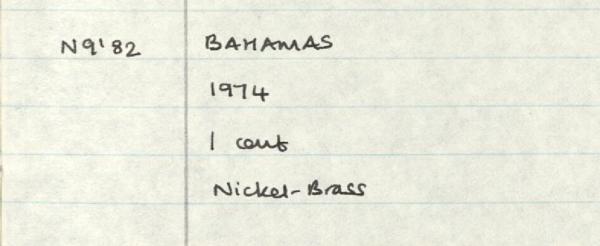 N9'82 BAHAMAS
1974
1 cent
Nickel-Brass